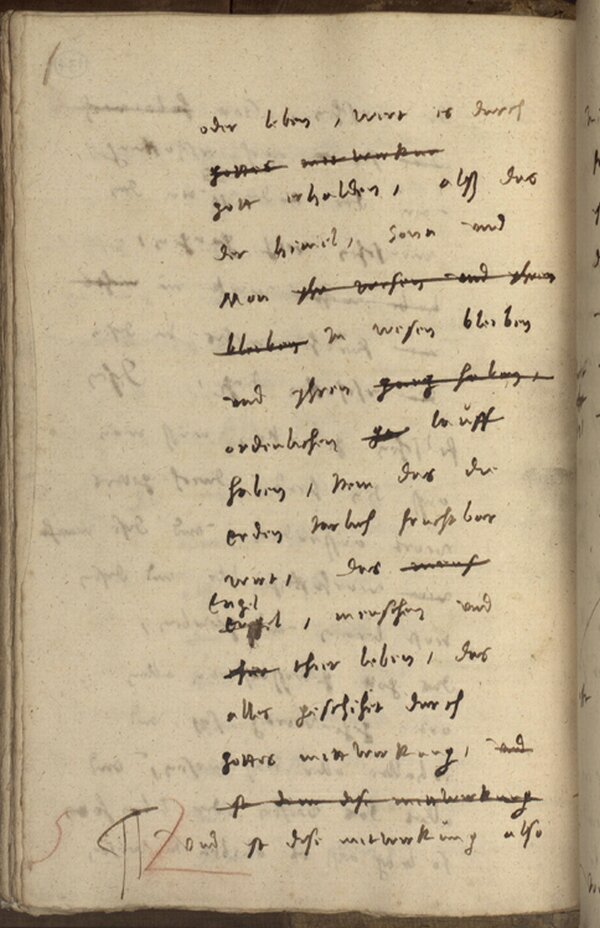 oder leben, wirt es durch
gottes mitwerkung
gott erhalden, alß das
der himel, sonn und
Mon ihr wesen und ihren
bleiben in wesen bleiben
und yhren gang haben,
ordenlichen ga lauff
haben, Item das die
erden Jarlich fruchtbar
wirt, das mensch
Engel
engel, menschen und
thier thier leben, das
alles geschihet durch
gottes mittwerkung, und
ist denn dise mittwerkung
und ist dise mitwerkung also